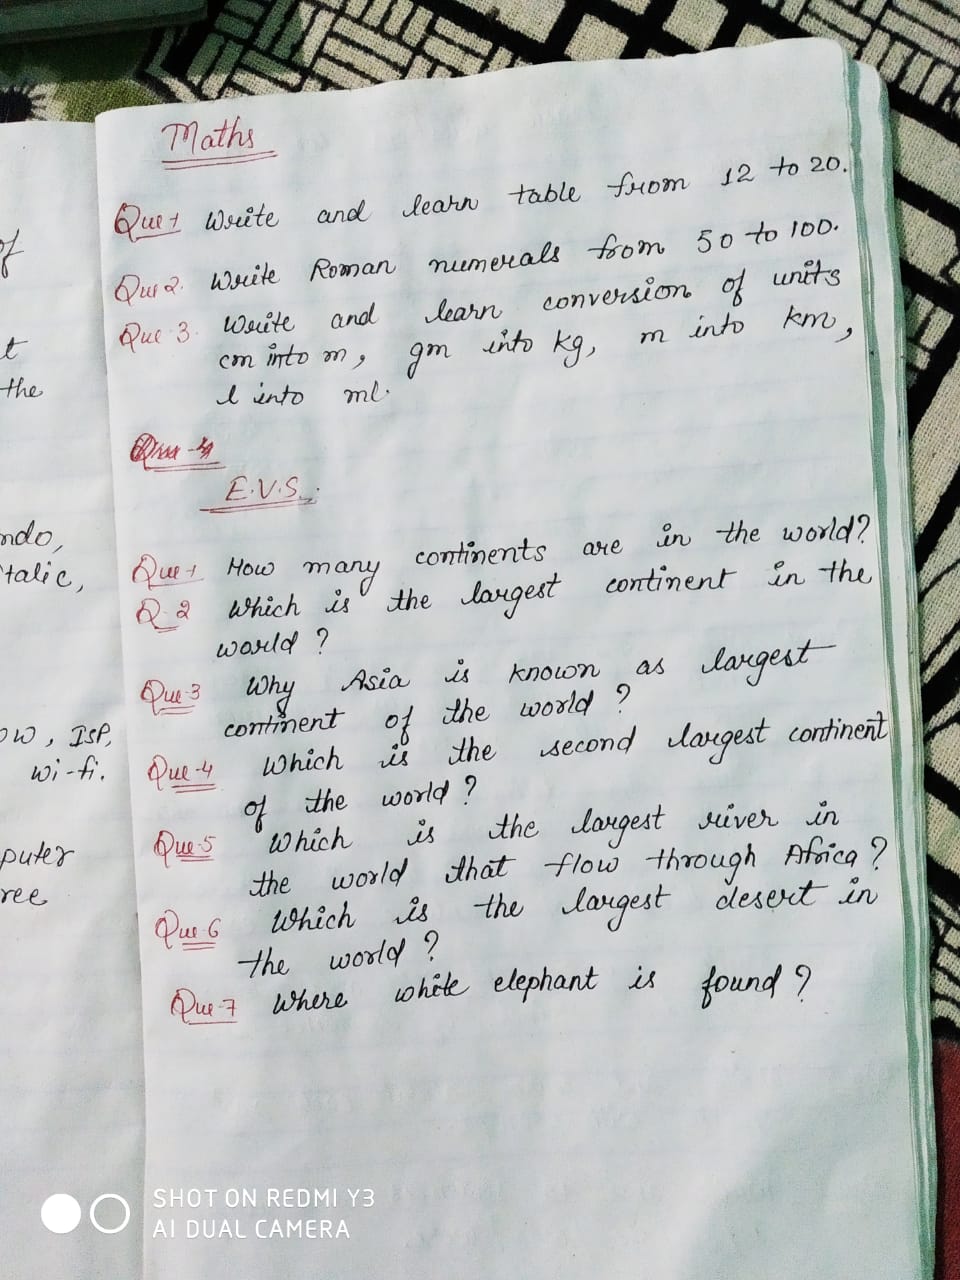 of
t
the
ndo,
talic,
ow, ISP,
wi-fi.
puter
ree
Maths
Que 1 Write and learn table from 12 to 20.
Que 2. Write Roman numerals from 50 to 100.
Que 3. Write and learn conversion of units
cm into m, gm into kg, m into km,
l into ml.
E.V.S.
Que 1 How many continents are in the world?
Q. 2 Which is the largest continent in the
world?
Que-3 Why Asia is known as largest
continent of the world?
Que-4 Which is the second largest continent
of the world?
Que-5 Which is the largest river in
the world that flow through Africa?
Que-6 Which is the largest desert in
the world?
Que-7 Where white elephant is found?
SHOT ON REDMI Y3
AI DUAL CAMERA